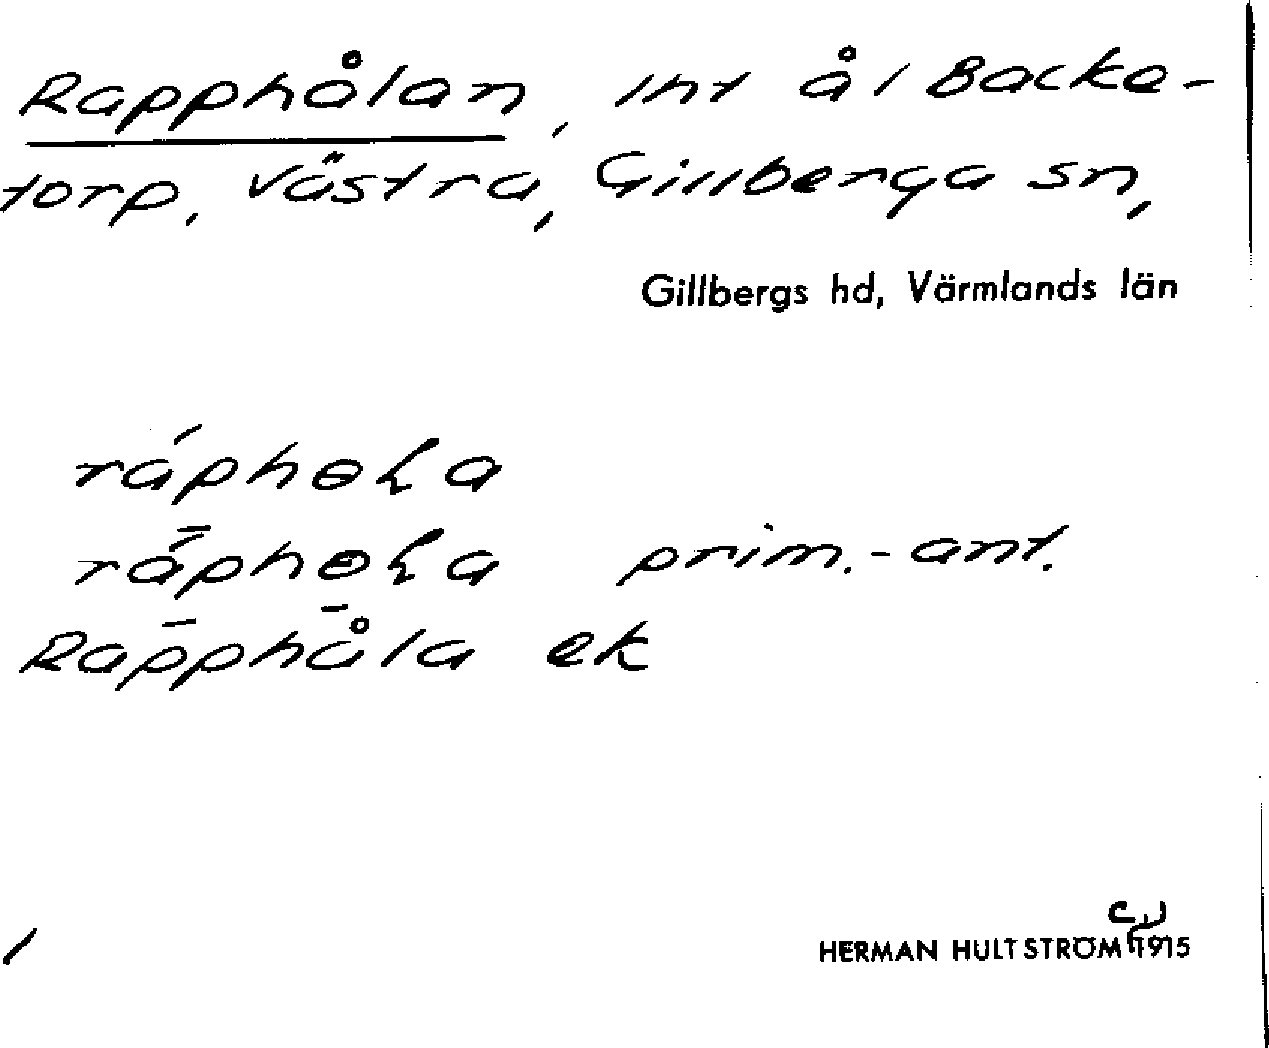 Rapphålan, int å i Backe-
torp, Västra, Gillberga sn,
Gillbergs hd, Värmlands län
ráphɵɽa
rá̄phɵɽa prim.-ant.
Rap̄phå̄la ek
HERMAN HULTSTRÖM 1915